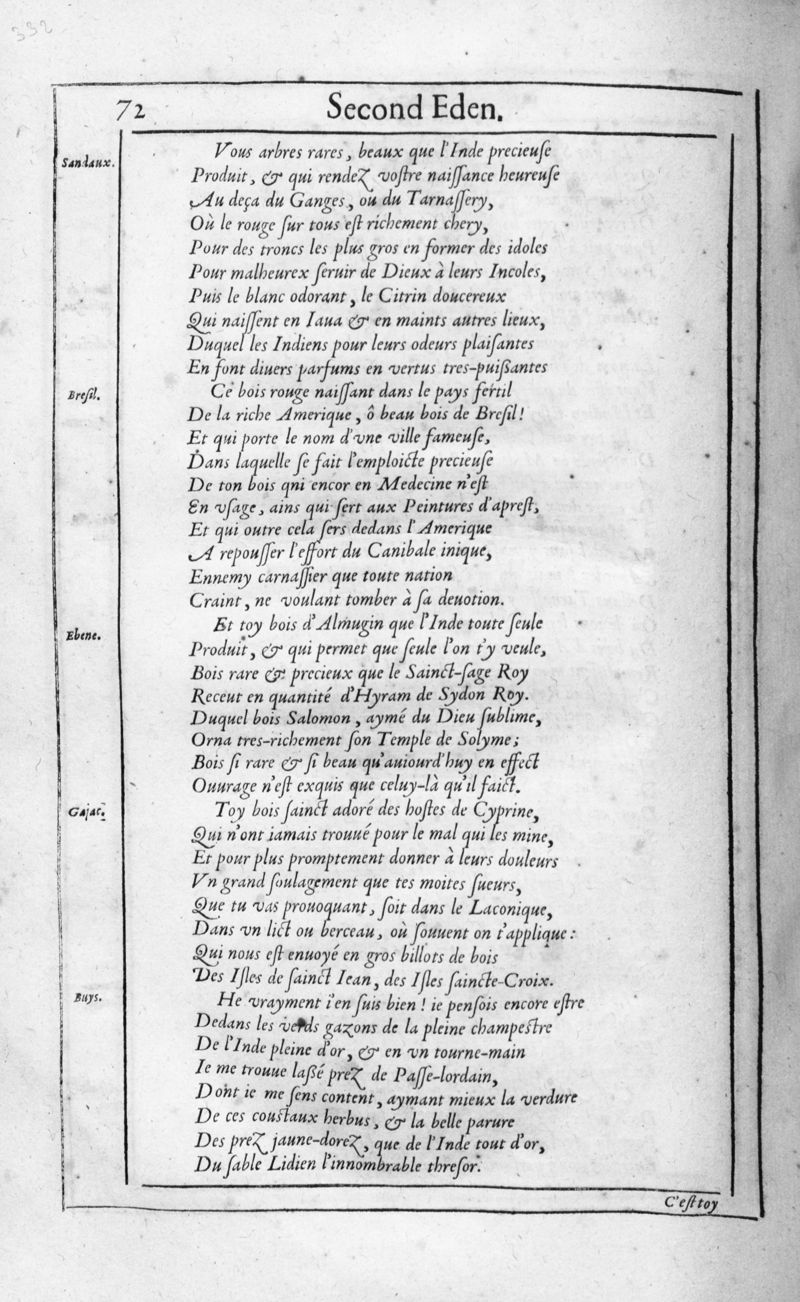 332
72 Second Eden.
Sandaux.
Vous arbres rares, beaux que l'Inde precieuſe
Produit, & qui rendez voſtre naiſſance heureuſe
Au deça du Ganges, ou du Tarnaſſery,
Où le rouge ſur tous eſt richement chery,
Pour des troncs les plus gros en former des idoles
Pour malheurex ſeruir de Dieux à leurs Incoles,
Puis le blanc odorant, le Citrin doucereux
Qui naiſſent en Iaua & en maints autres lieux,
Duquel les Indiens pour leurs odeurs plaiſantes
En font diuers parfums en vertus tres-puiſſantes
Breſil.
Ce bois rouge naiſſant dans le pays fertil
De la riche Amerique, ô beau bois de Breſil!
Et qui porte le nom d'vne ville fameuſe,
Dans laquelle ſe fait l'emploicte precieuſe
De ton bois qni encor en Medecine n'eſt
En vſage, ains qui ſert aux Peintures d'apreſt,
Et qui outre cela ſers dedans l'Amerique
A repouſſer l'effort du Canibale inique,
Ennemy carnaſſier que toute nation
Craint, ne voulant tomber à ſa deuotion.
Ebene.
Et toy bois d'Almugin que l'Inde toute ſeule
Produit, & qui permet que ſeule l'on t'y veule,
Bois rare & precieux que le Sainct-ſage Roy
Receut en quantité d'Hyram de Sydon Roy.
Duquel bois Salomon, aymé du Dieu ſublime,
Orna tres-richement ſon Temple de Solyme;
Bois ſi rare & ſi beau qu'auiourd'huy en effect
Ouurage n'eſt exquis que celuy-là qu'il faict.
Gajac.
Toy bois ſainct adoré des hoſtes de Cyprine,
Qui n'ont iamais trouué pour le mal qui les mine,
Et pour plus promptement donner à leurs douleurs
Vn grand ſoulagement que tes moites ſueurs,
Que tu vas prouoquant, ſoit dans le Laconique,
Dans vn lict ou berceau, où ſouuent on t'applique:
Qui nous eſt enuoyé en gros billots de bois
Des Iſles de ſainct Iean, des Iſles ſaincte-Croix.
Buys.
He vrayment i'en ſuis bien! ie penſois encore eſtre
Dedans les verds gazons de la pleine champeſtre
De l'Inde pleine d'or, & en vn tourne-main
Ie me trouue laſſé prez de Paſſe-lordain,
Dont ie me ſens content, aymant mieux la verdure
De ces couſtaux herbus, & la belle parure
Des prez jaune-dorez, que de l'Inde tout d'or,
Du ſable Lidien l'innombrable threſor.
C'eſt toy